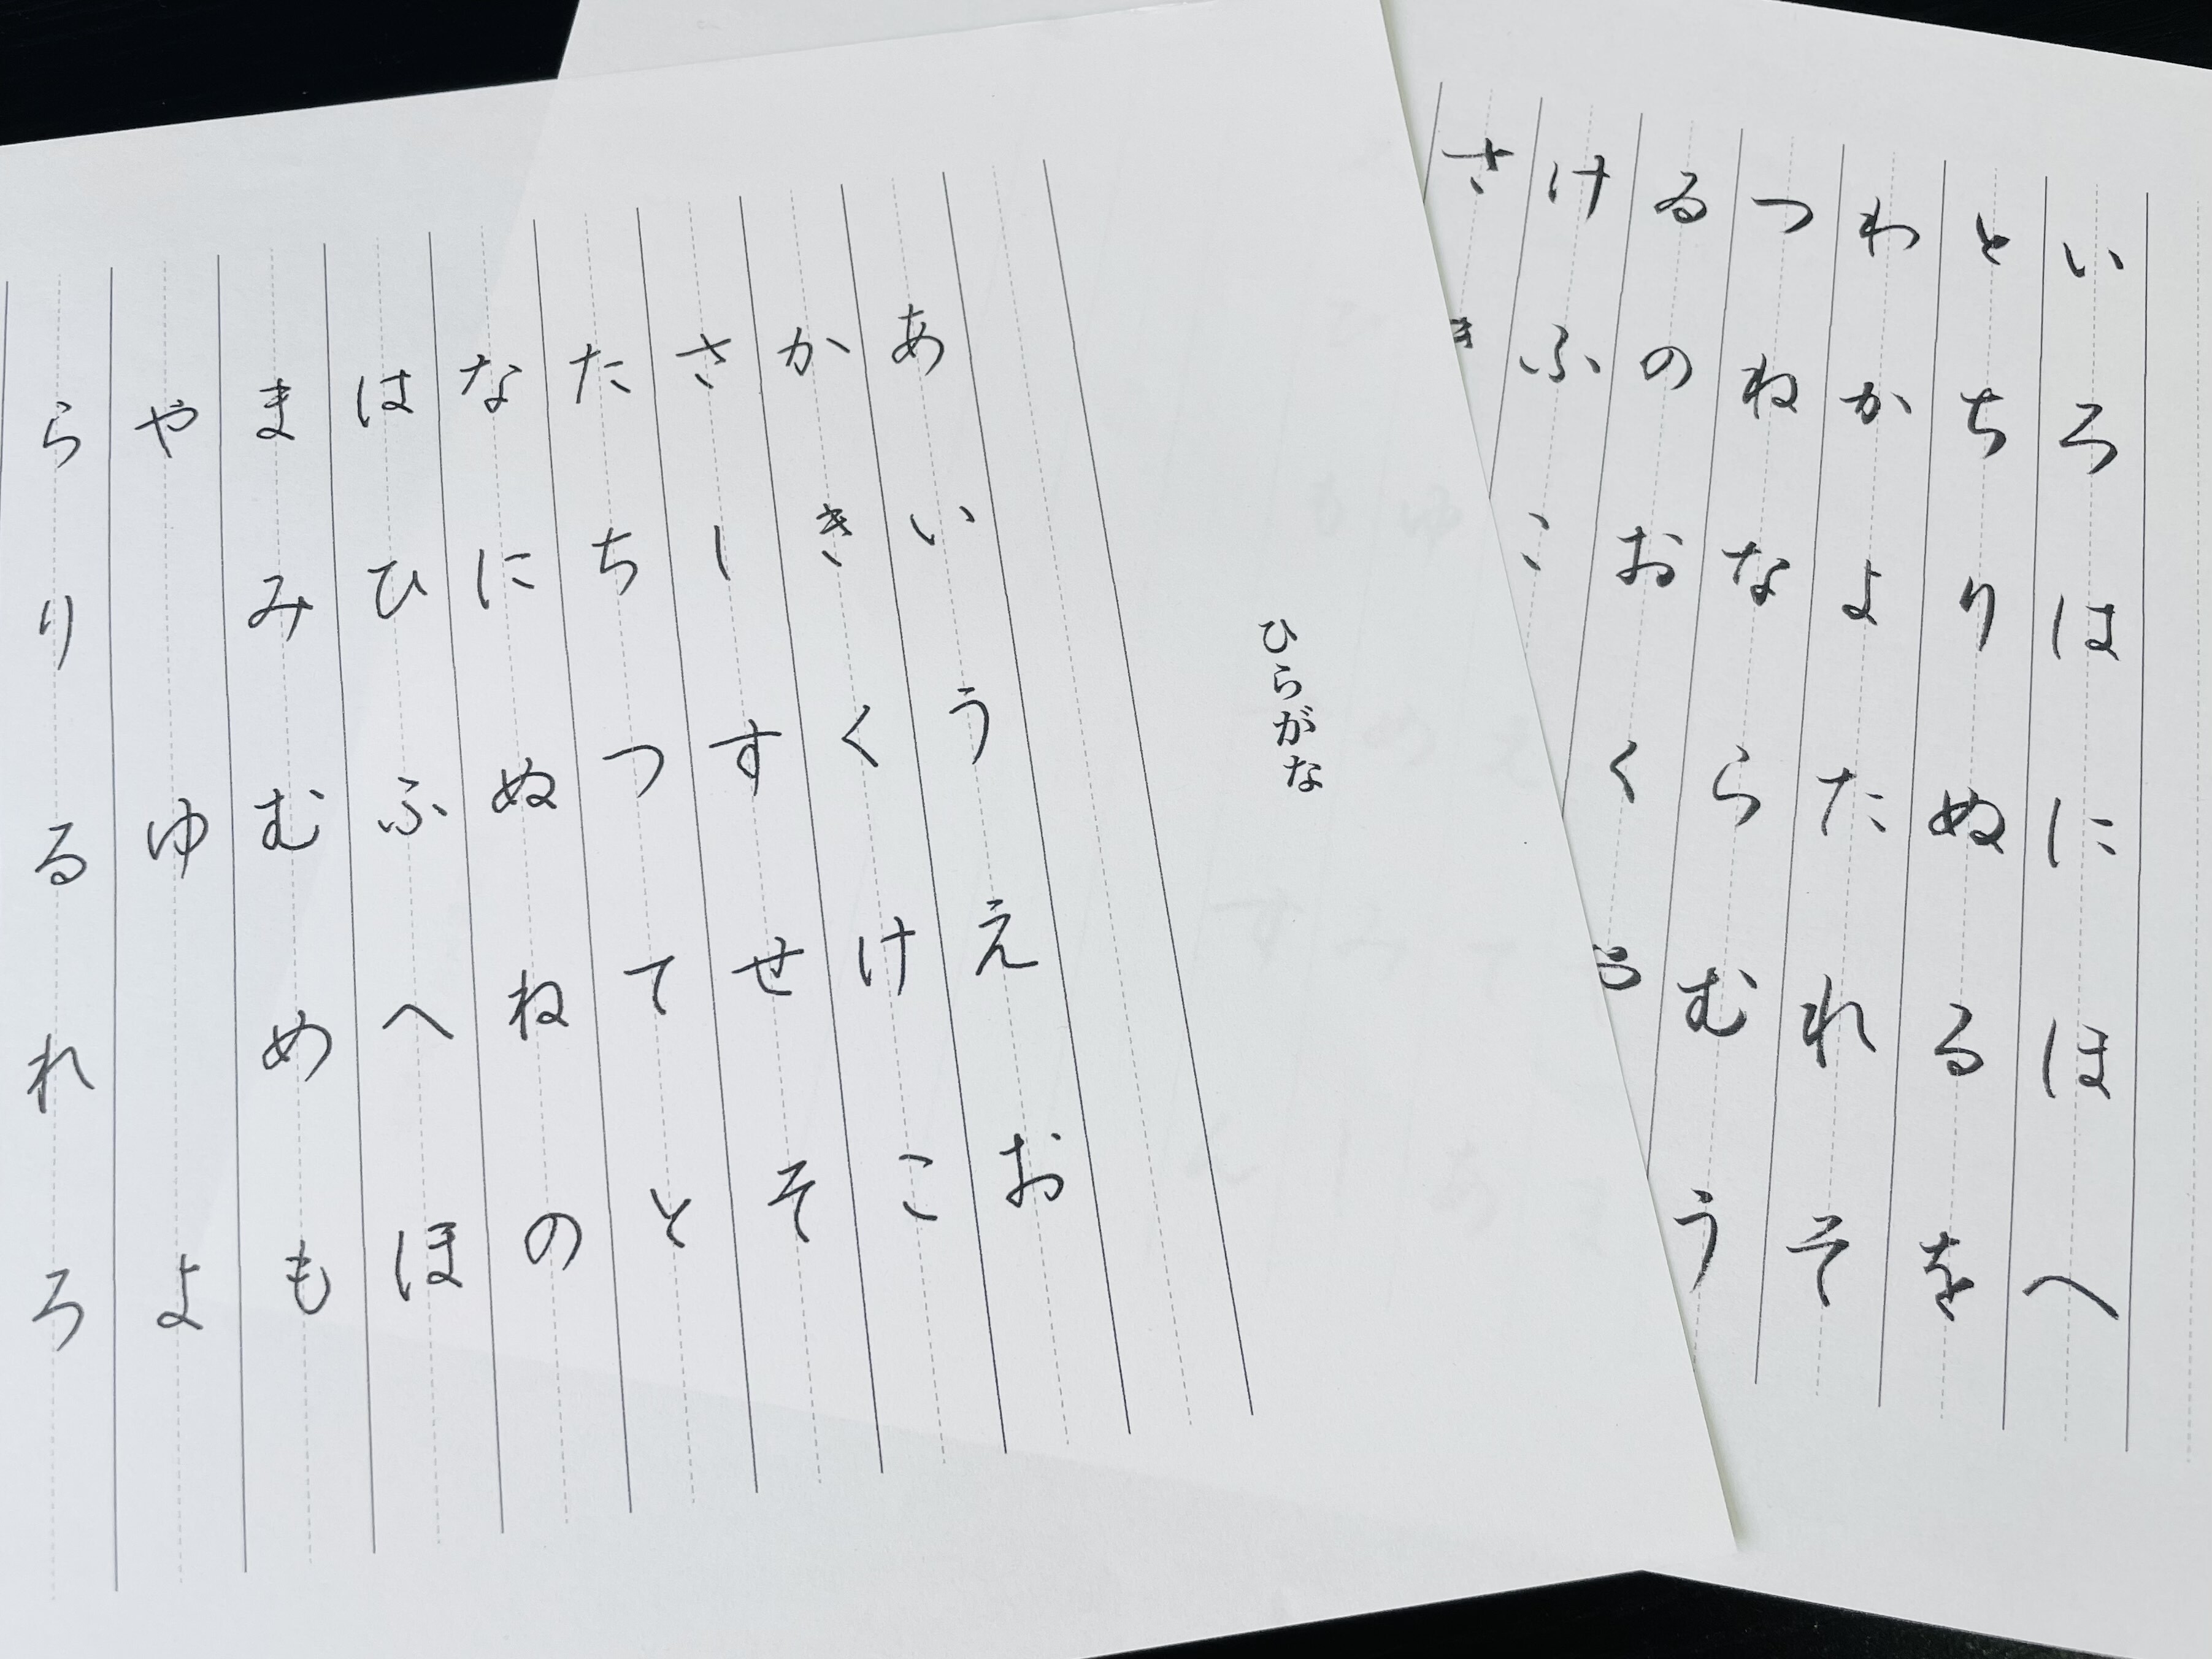 ひらがな
あいうえお
かきくけこ
さしすせそ
たちつてと
なにぬねの
はひふへほ
まみむめも
やゆよ
らりるれろ
いろはにほへ
とちりぬるを
わかよたれそ
つねならむう
ゐのおく
けふこ
さ